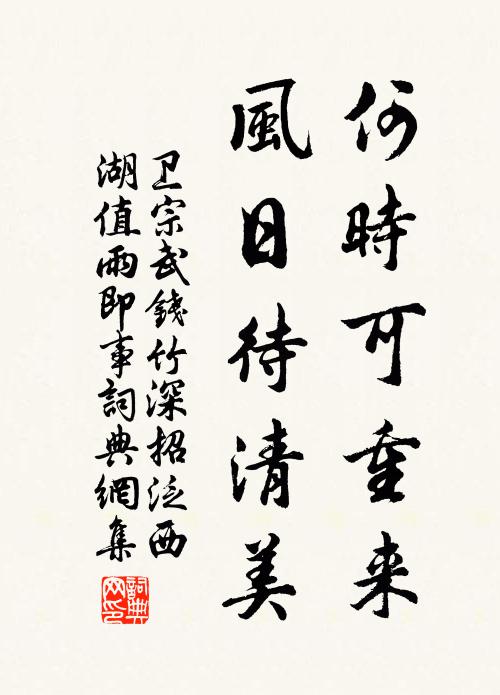 何時可重来
風日待清美
卫宗武錢竹深招泛西
湖值雨即事詞典網集
詞典网印